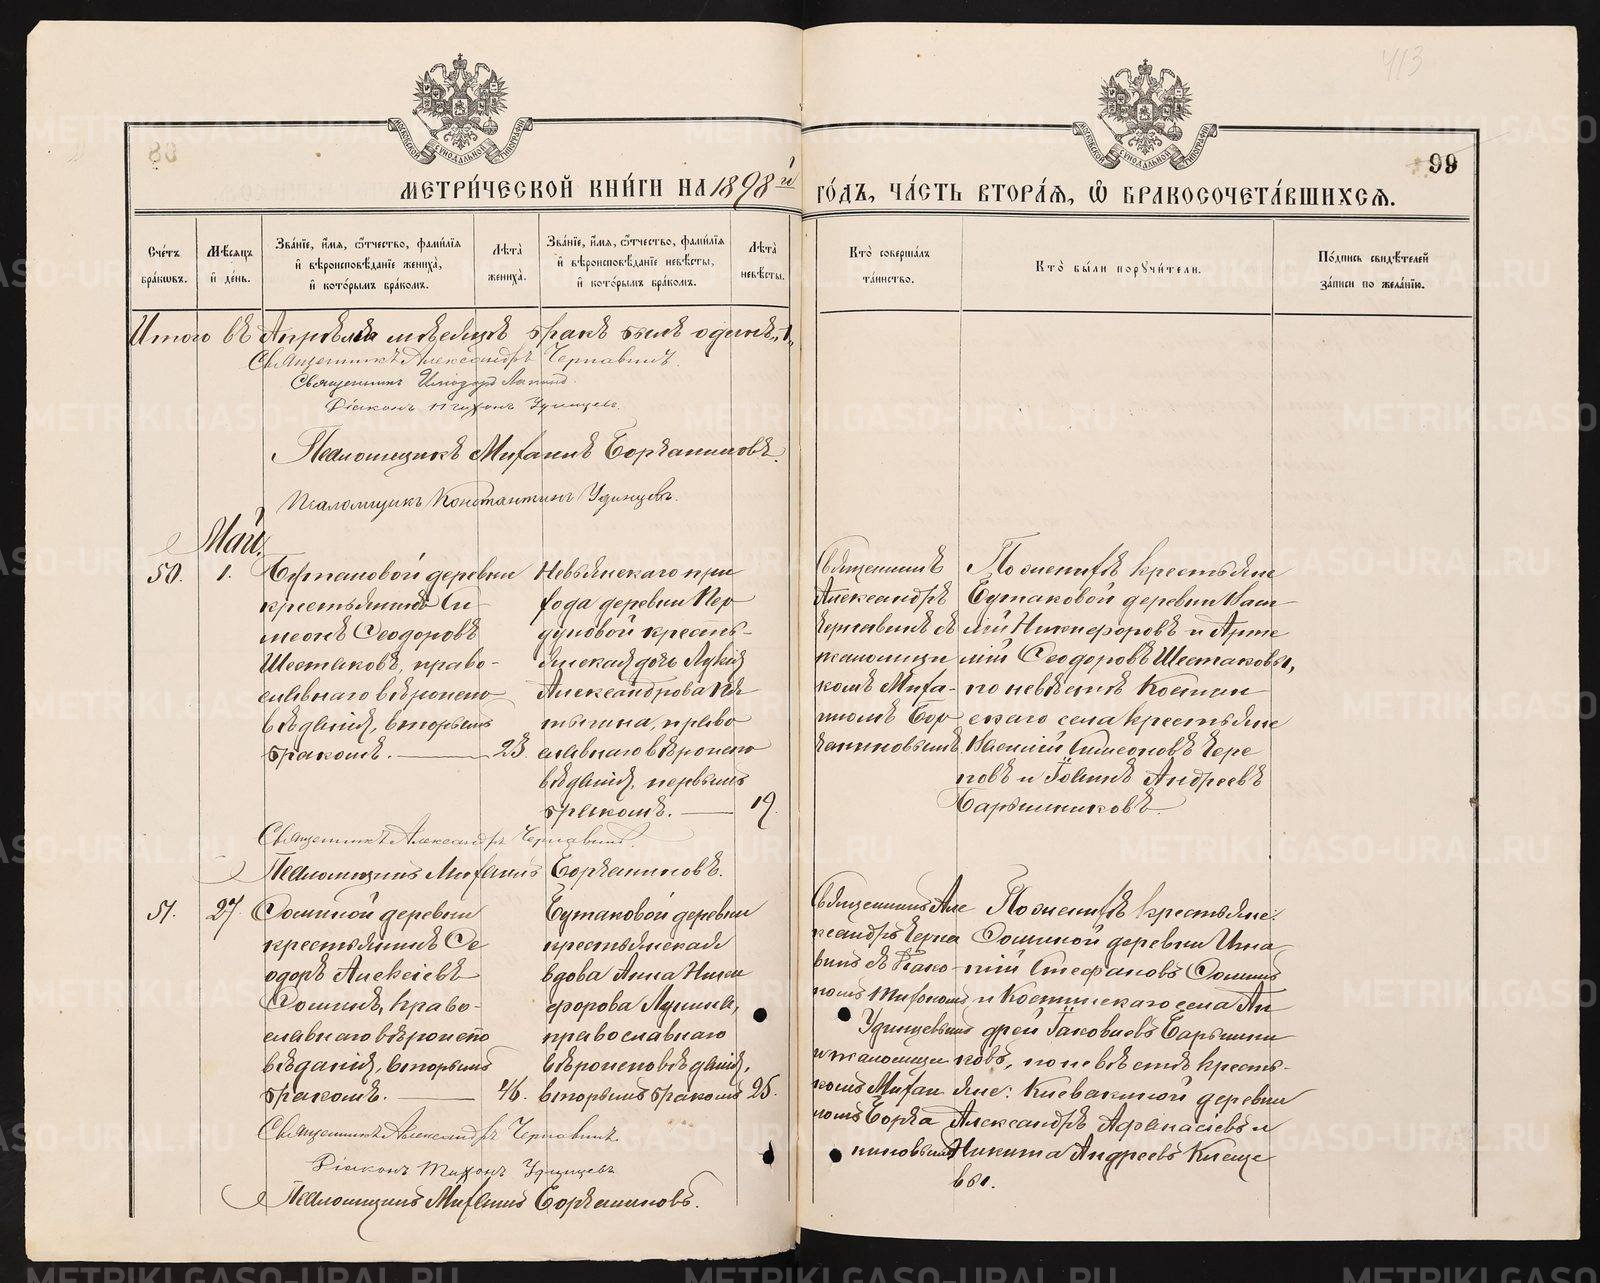 413
99
МОСКОВСКОЙ СѴНОДАЛЬНОЙ ТИПОГРАФІИ
МОСКОВСКОЙ СѴНОДАЛЬНОЙ ТИПОГРАФІИ
МЕТРИ́ЧЕСКОЙ КНИ́ГИ НА 1898 й ГО́ДЪ, ЧА́СТЬ ВТОРА́Я, Ѽ БРАКОСОЧЕТА́ВШИХСЯ.
Сче́тъ бра́кѡвъ.
Мѣ́сяцъ и҆ де́нь.
Зва́нїе, и҆́мя, ѻ҆́тчество, фами́лїя и҆ вѣроисповѣ́данїе жениха̀, и҆ кото́рымъ бра́комъ.
Лѣ́та жениха̀.
Зва́нїе, и҆́мя, ѻ҆́тчество, фами́лїя и҆ вѣроисповѣ́данїе невѣ́сты, и҆ кото́рымъ бра́комъ.
Лѣ́та невѣ́сты.
Кто̀ соверша́лъ та́инство.
Кто̀ бы́ли порꙋчи́тели.
По́дпись свидѣ́телей за́писи по жела́нїю.
Итого въ Апрѣлѣ мѣсяцѣ бракъ былъ одинъ „1„
Священникъ Александръ Чернавинъ.
Священникъ Иліодоръ
Діаконъ Тихонъ Удинцевъ.
Псаломщикъ Михаилъ Борчаниновъ.
Псаломщикъ Константинъ Удинцевъ.
Май.
50. 1.
Бутаковой деревни
крестьянинъ Си-
меонъ Ѳеодоровъ
Шестаковъ, право-
славнаго вѣроиспо-
вѣданія, вторымъ
бракомъ. — 23.
Невьянскаго при
хода деревни
крестья-
янская дочь Лукія
Александрова
православнаго вѣроиспо
вѣданія, первымъ
бракомъ. — 19.
Священникъ
Александръ
Чернавинъ съ
псаломщи
комъ Миха-
иломъ Бор
чаниновымъ
По женихѣ крестьяне
Бутаковой деревни Васи-
лій Никифоровъ и Арте
мій Ѳеодоровъ Шестаковы,
по невѣстѣ Костин
скаго села крестьяне
Василій Симеоновъ Чере
повъ и Іоаннъ Андреевъ
Барышниковъ
Священникъ Александръ Чернавинъ.
Псаломщикъ Михаилъ Борчаниновъ.
51. 27.
Ѳоминой деревни
крестьянинъ Ѳе
одоръ Алексіевъ
Ѳоминъ, право-
славнаго вѣроиспо
вѣданія, вторымъ
бракомъ. — 46.
Бутаковой деревни
крестьянская
вдова Анна Ники
форова
православнаго
вѣроисповѣданія,
вторымъ бракомъ 25.
Священникъ Але
ксандръ Черна
винъ съ Діако
номъ Тихономъ
Удинцевымъ
и псаломщи
комъ Михаи
ломъ Борча
ниновымъ
По женихѣ крестьяне:
Ѳоминой деревни Игна
тій Стефановъ Ѳоминъ
и Костинскаго села Ан
дрей Іаковлевъ Барышни
ковъ, по невѣстѣ кресть-
яне: деревни
Александръ Аѳанасіевъ и
Никита Андреевъ Клеще
вы.
Священникъ Александръ Чернавинъ
Діаконъ Тихонъ Удинцевъ
Псаломщикъ Михаилъ Борчаниновъ.
METRIKI.GASO-URAL.RU